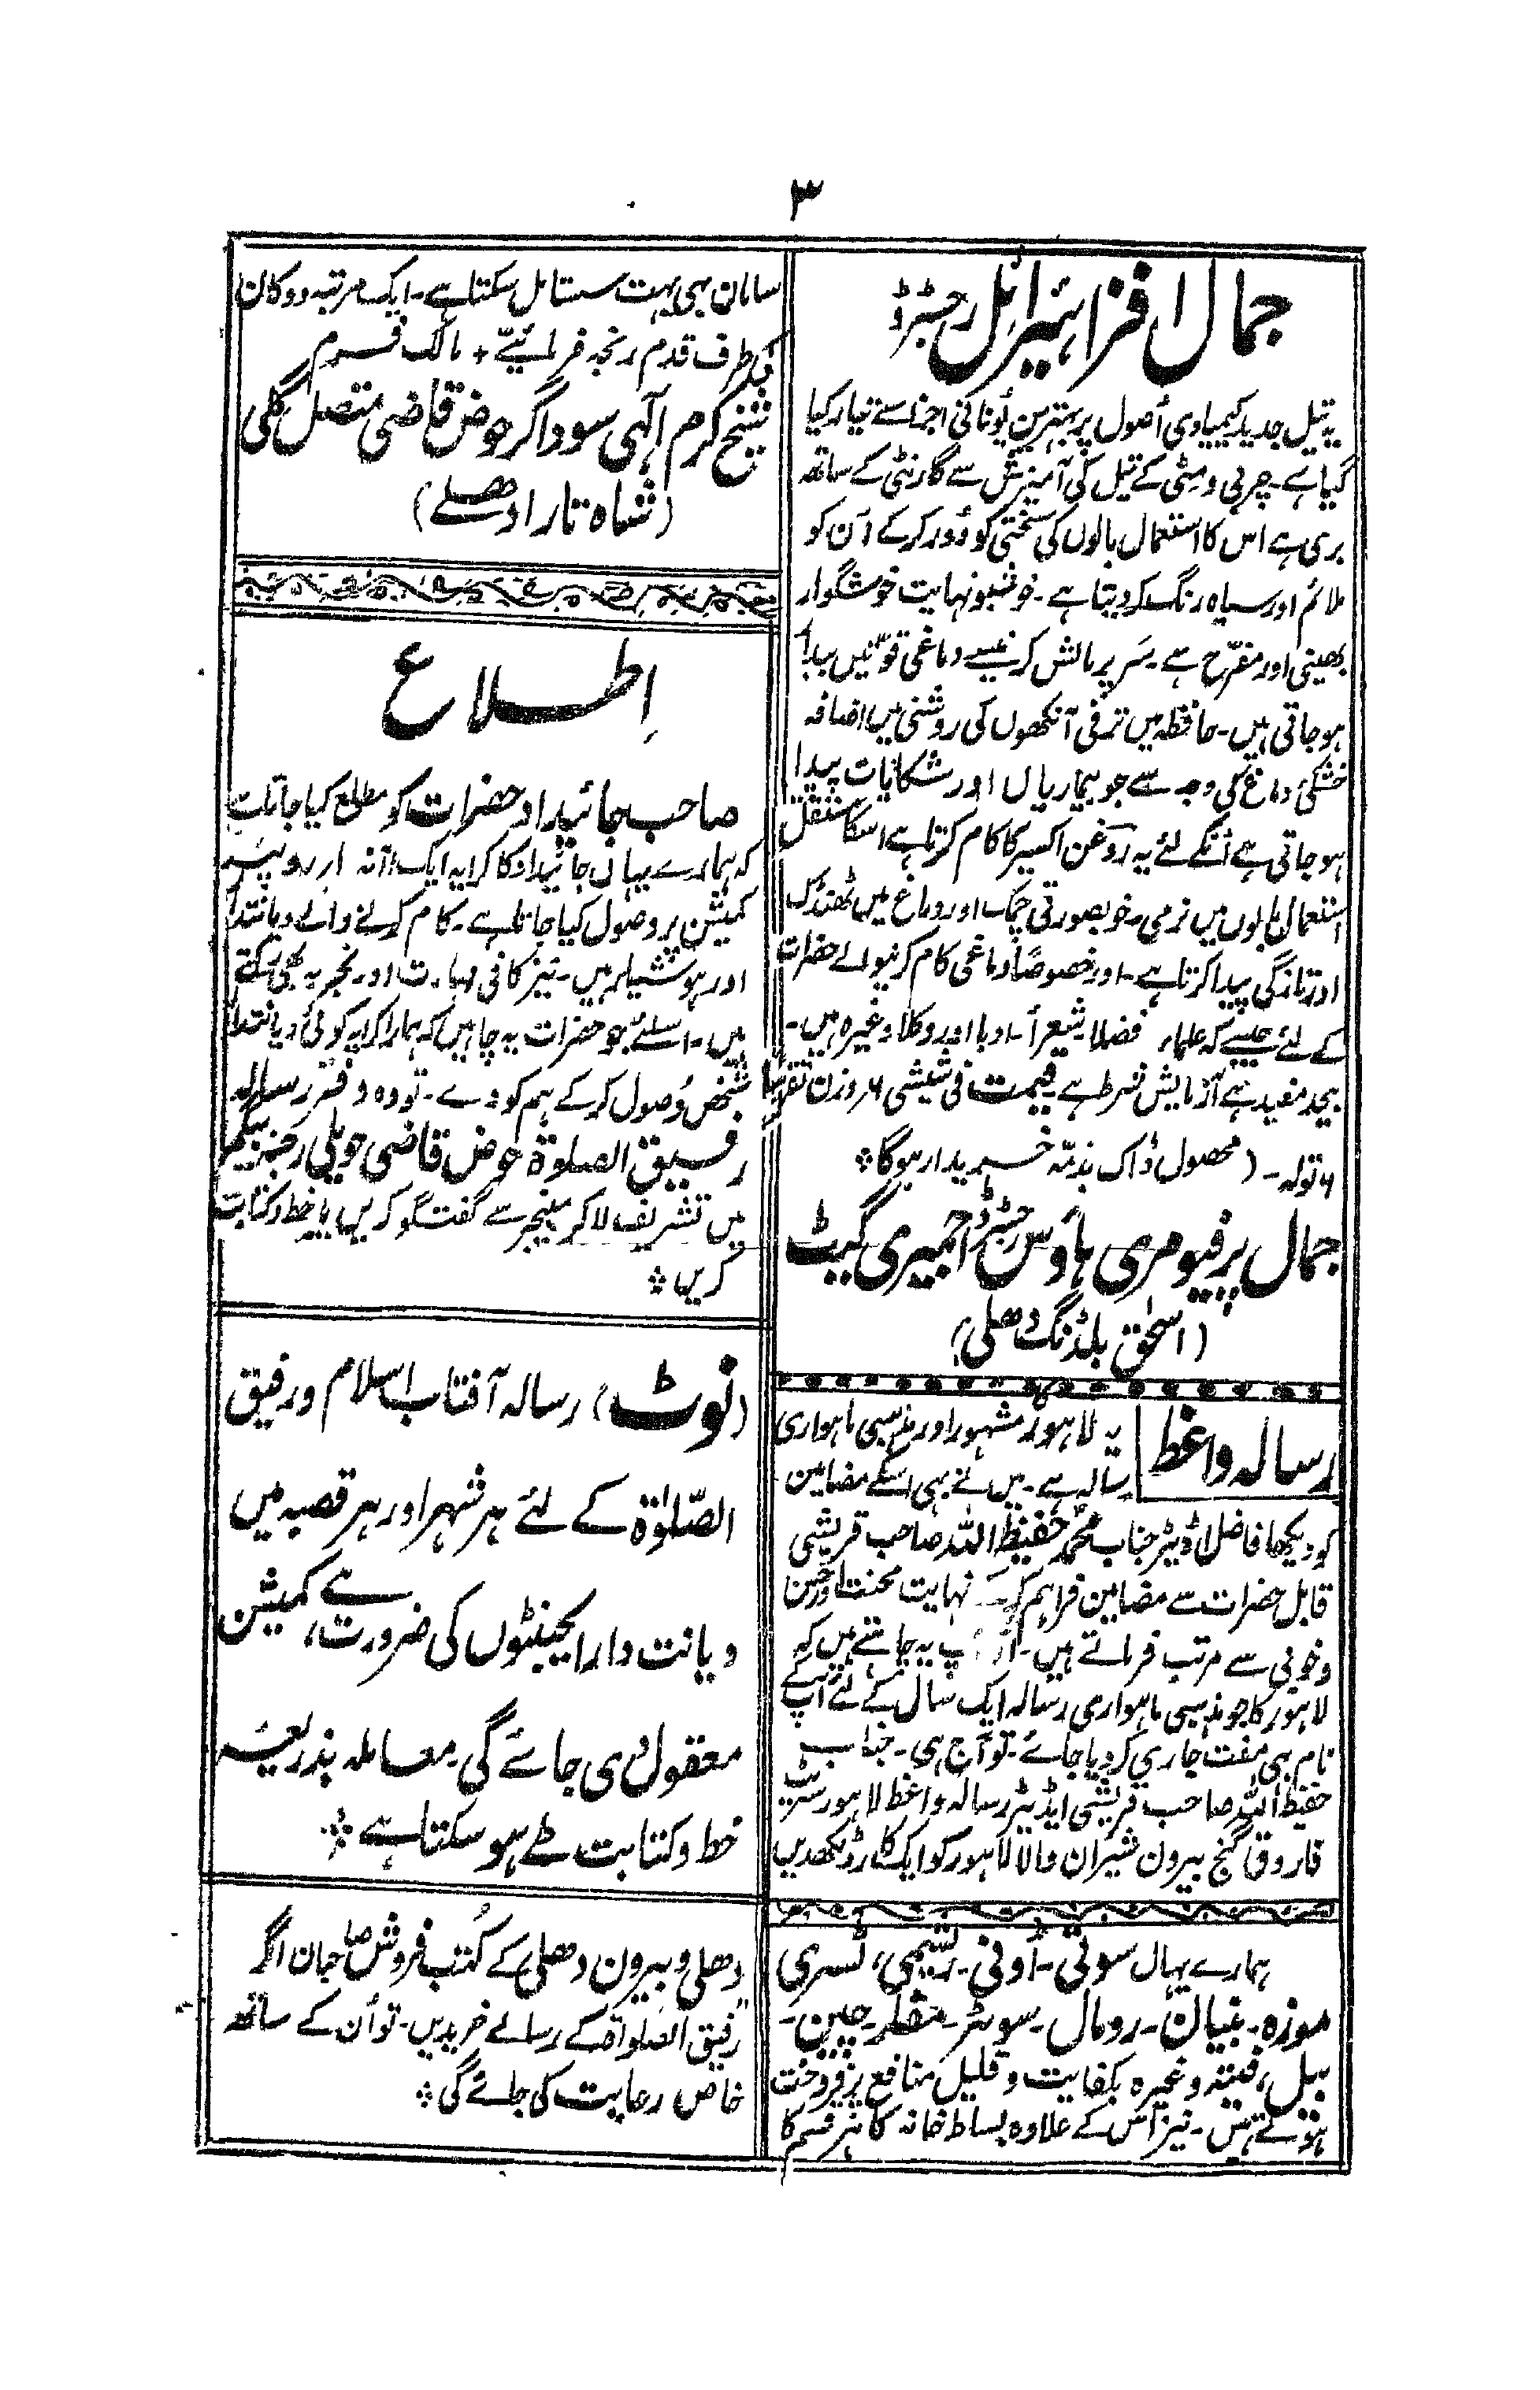 ۳
جمال افزا ہئیر ائل رجسٹرڈ
یہ تیل جدید کیمیاوی اُصول پر بہترین یُونانی اجزا سے تیار کیا
گیا ہے۔ چربی و مِٹی کے تیل کی آمیزش سے گارنٹی کے ساتھ
بری ہے اس کا استعمال بالوں کی سختی کو دُور کر کے اُن کو
ملائم اور سیاہ رنگ کر دیتا ہے۔ خوشبو نہایت خوشگوار
بھینی اور مفرّح ہے۔ سَر پر مالش کرنیسے دماغی قوّتیں پیدا
ہو جاتی ہیں۔ حافظہ میں ترقی آنکھوں کی روشنی میں اضافہ
خشکیٔ دماغ کی وجہ سے جو بیماریاں اور شکایات پیدا
ہو جاتی ہے اُنکے لئے یہ روغن اکسیر کا کام کرتا ہے اسکا مستقل
استعمال بالوں میں نرمی۔ خوبصورتی چمک اور دماغ میں ٹھنڈک
اور تازگی پیدا کرتا ہے۔ اور خصوصًا دماغی کام کرنیوالے حضرات
کے لئے جیسے کہ علماء فضلا۔ شعرأ۔ ادبا اور وکلا وغیرہ ہیں۔
بیحد مفید ہے آزمایش شرط ہے قیمت فی شیشی ۶ر وزن تقریبا
۶ تولہ۔ (محصول ڈاک بذمّہ خریدار ہوگا؞
جمال پرفیومری ہاؤس رجسٹرڈ اجمیری گیٹ
(اسحٰق بلڈنگ دھلی)
رسالہ واعظ
یہ لاہور کا مشہور اور مذہبی ماہواری
رسالہ ہے۔ میں نے بھی اسکے مضامین
کو دیکھا فاضل اڈیٹر جناب محمد حفیظ اللہ صاحب قریشی
قابل حضرات سے مضامین فراہم کر کے نہایت محنت اور حسن
و خوبی سے مرتب فرماتے ہیں۔ اگر آپ یہ چاہتے ہیں کہ
لاہور کا جو مذہبی ماہواری رسالہ ایک سال کے لئے آپ کے
نام ہی مفت جاری کر دیا جائے۔ تو آج ہی۔ جناب
حفیظ اللہ صاحب قریشی ایڈیٹر رسالہ واعظ لاہور سٹریٹ
فاروق گنج بیرون شیران والا لاہور کو ایک کارڈ لکھدیں
ہمارے یہاں سوتی۔ اُونی۔ ریشمی، ٹسری
موزہ۔ بنیان۔ رومال۔ سویٹر۔ مفلر۔ چین۔
بیل، فیتہ وغیرہ بکفایت و قلیل منافع پر فروخت
ہوتے ہیں۔ نیز اس کے علاوہ بساط خانہ کا ہر قسم کا
سامان بھی بہت سستا مل سکتا ہے۔ ایک مرتبہ دوکان
کیطرف قدم رنجہ فرمائیے + مالک فرم
شیخ کرم الٰہی سوداگر حوض قاضی متصل گلی
(شاہ تارا دھلی)
اِطلاع
صاحب جائیداد حضرات کو مطلع کیا جاتا ہے
کہ ہمارے یہاں جائیداد کا کرایہ ایک آنہ ار روپیہ
کمیشن پر وصول کیا جاتا ہے۔ کام کرنے والے دیانتدار
اور ہوشیار ہیں۔ نیز کافی مہارت اور تجربہ بھی رکھتے
ہیں۔ اسلئے جو حضرات یہ چاہیں کہ ہمارا کرایہ کوئی دیانتدار
شخص وُصول کر کے ہم کو دے۔ تو وہ دفتر رسالہ
رفیق الصلوٰة حوض قاضی حویلی رجنہ بیگم
میں تشریف لا کر مینیجر سے گفتگو کریں یا خط و کتابت
کریں ؞
(نوٹ) رسالہ آفتاب اسلام و رفیق
الصّلوٰة کے لئے ہر شہر اور ہر قصبہ میں
دیانت دار ایجنیٹوں کی ضرورت ہے، کمیشن
معقول دی جائے گی۔ معاملہ بذریعہ
خط و کتابت طے ہو سکتا ہے ؞
دھلی و بیرون دھلی کے کُتب فروش صاحبان اگر
رفیق الصّلوٰة کے رسالے خریدیں۔ تو اُن کے ساتھ
خاص رعایت کی جائے گی ؞